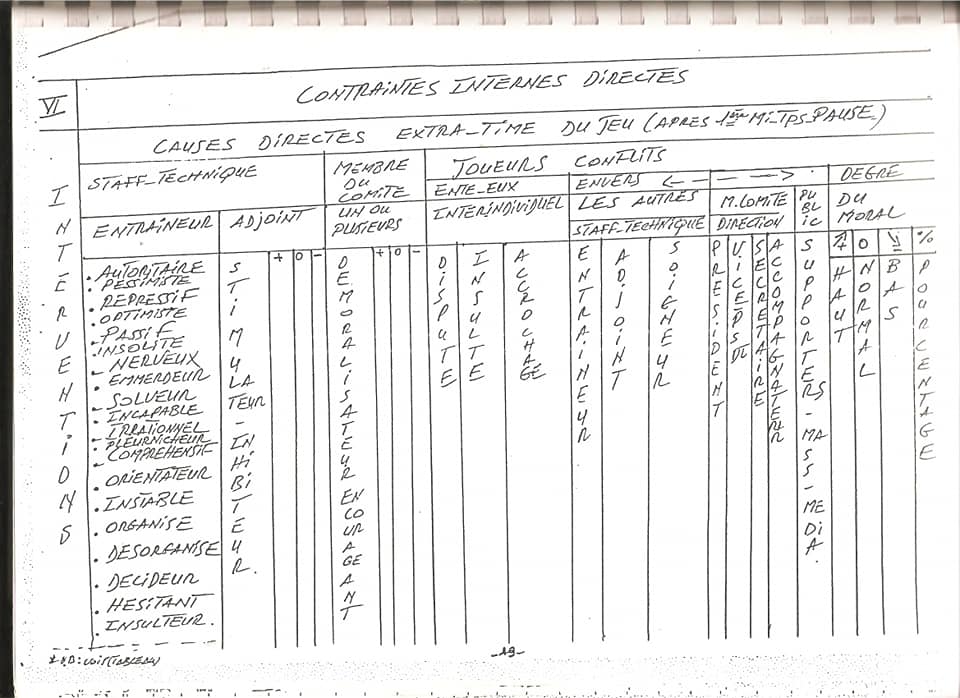 VI
CONTRAINTES INTERNES DIRECTES
CAUSES DIRECTES EXTRA-TIME DU JEU (APRES 1ère Mi-Tps-PAUSE)
INTÉRVENTIONS
STAFF-TECHNIQUE
MEMBRE
OU
COMITE
JOUEURS CONFLITS
DEGRE
DU
MORAL
ENTE-EUX
ENVERS
LES AUTRES
ENTRAINEUR
ADJOINT
UN OU
PLUSIEURS
INTERINDIVIDUEL
STAFF-TECHNIQUE
M.COMITE
DIRECTION
PUBLIC
+ 0 -
+ 0 -
%
. AUTORITAIRE
. PESSIMISTE
. REPRESSIF
. OPTIMISTE
. PASSIF
. INSOLITE
- NERVEUX
. EMMERDEUR
- SOLVEUR
- INCAPABLE
. IRRATIONNEL
- PLEURNICHEUR
- COMPREHENSIF
. ORIENTATEUR
. INSTABLE
. ORGANISE
. DESORGANISE
. DECIDEUR
. HESITANT
. INSULTEUR.
STIMULATEUR - INHIBITEUR.
DEMORALISATEUR ENCOURAGEANT
DISPUTE
INSULTE
ACCROCHAGE
ENTRAINEUR
ADJOINT
SOIGNEUR
PRESIDENT
VICE PSDT
SECRETAIRE
ACCOMPAGNATEUR
SUPPORTERS - MASS-MEDIA
HAUT
NORMAL
BAS
POURCENTAGE
-19-